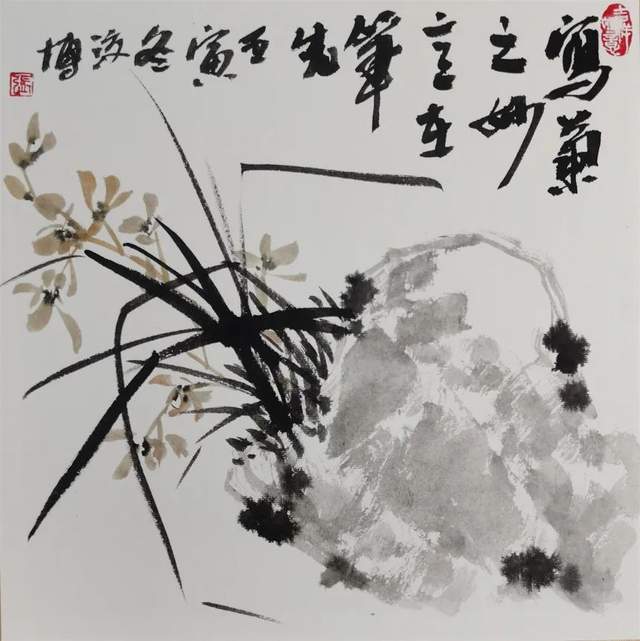 寫蘭
之妙
意在
筆
先
壬
寅
冬
博